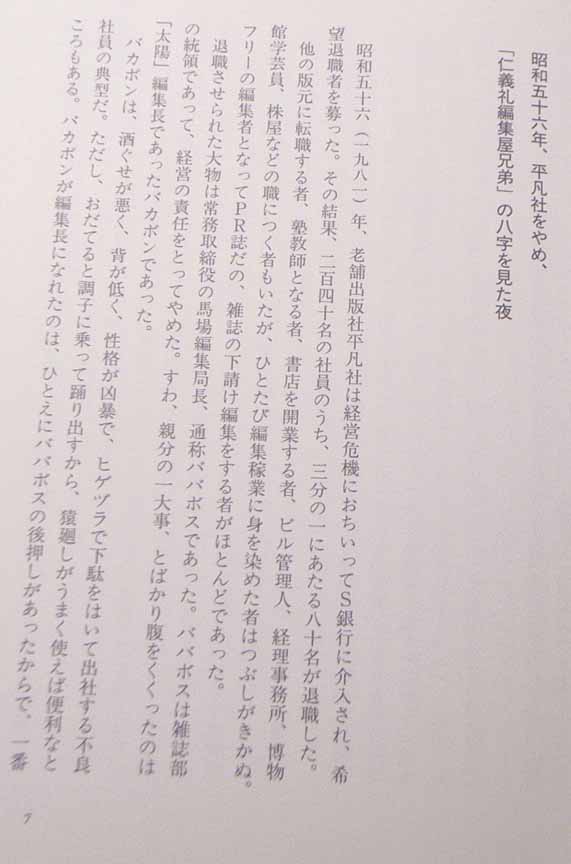 昭和五十六年、平凡社をやめ、
「仁義礼編集屋兄弟」の八字を見た夜
昭和五十六（一九八一）年、老舗出版社平凡社は経営危機におちいってＳ銀行に介入され、希
望退職者を募った。その結果、二百四十名の社員のうち、三分の一にあたる八十名が退職した。
他の版元に転職する者、塾教師となる者、書店を開業する者、ビル管理人、経理事務所、博物
館学芸員、株屋などの職につく者もいたが、ひとたび編集稼業に身を染めた者はつぶしがきかぬ。
フリーの編集者となってＰＲ誌だの、雑誌の下請け編集をする者がほとんどであった。
退職させられた大物は常務取締役の馬場編集局長、通称ババボスであった。ババボスは雑誌部
の統領であって、経営の責任をとってやめた。すわ、親分の一大事、とばかり腹をくくったのは
「太陽」編集長であったバカボンであった。
バカボンは、酒ぐせが悪く、背が低く、性格が凶暴で、ヒゲヅラで下駄をはいて出社する不良
社員の典型だ。ただし、おだてると調子に乗って踊り出すから、猿廻しがうまく使えば便利なと
ころもある。バカボンが編集長になれたのは、ひとえにババボスの後押しがあったからで、一番
7